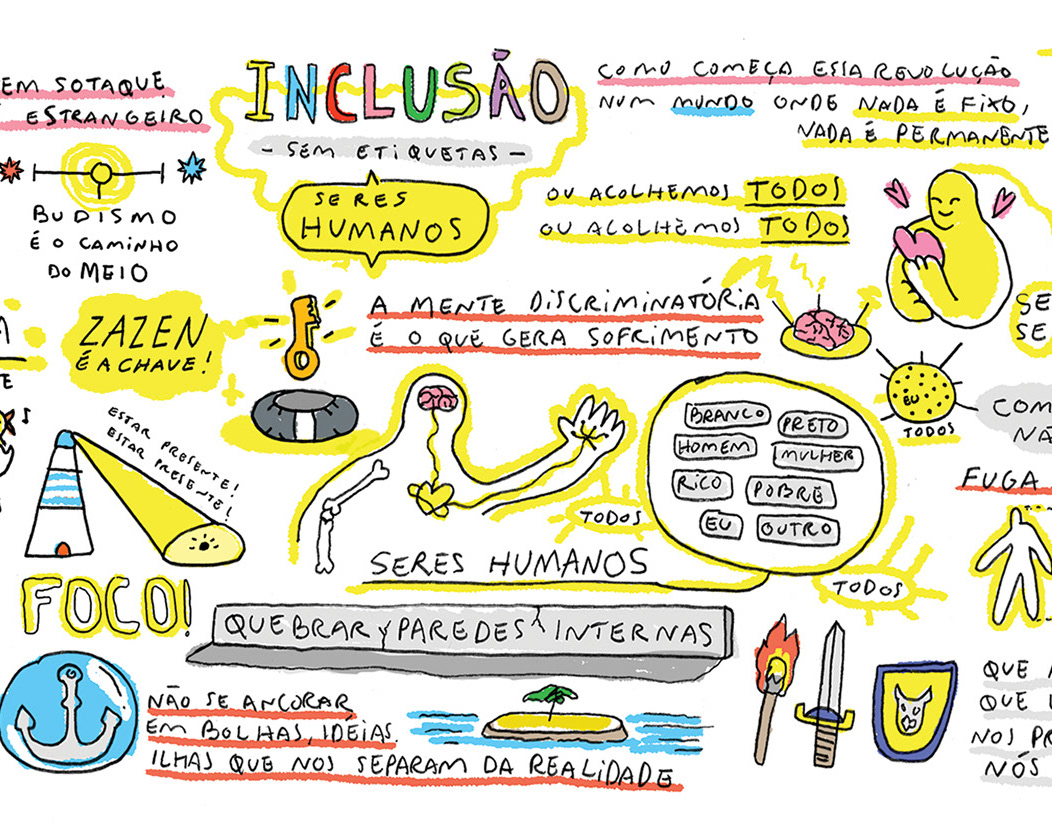 EM SOTAQUE
ESTRANGEIRO
BUDISMO
É O CAMINHO
DO MEIO
INCLUSÃO
- SEM ETIQUETAS -
SERES
HUMANOS
COMO COMEÇA ESSA REVOLUÇÃO
NUM MUNDO ONDE NADA É FIXO,
NADA É PERMANENTE
OU ACOLHEMOS TODOS
OU ACOLHEMOS TODOS
ZAZEN
É A CHAVE!
A MENTE DISCRIMINATÓRIA
É O QUE GERA SOFRIMENTO
SE
SE
EU
TODOS
COM
NÃ
ESTAR PRESENTE!
ESTAR PRESENTE!
BRANCO
PRETO
HOMEM
MULHER
RICO
POBRE
EU
OUTRO
TODOS
TODOS
SERES HUMANOS
FUGA
FOCO!
QUEBRAR PAREDES INTERNAS
NÃO SE ANCORAR
EM BOLHAS, IDÉIAS.
ILHAS QUE NOS SEPARAM DA REALIDADE
QUE
QUE
NOS PR
NÓS